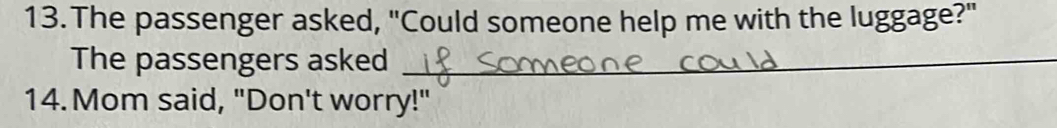 13. The passenger asked, "Could someone help me with the luggage?"
The passengers asked if someone could
14. Mom said, "Don't worry!"